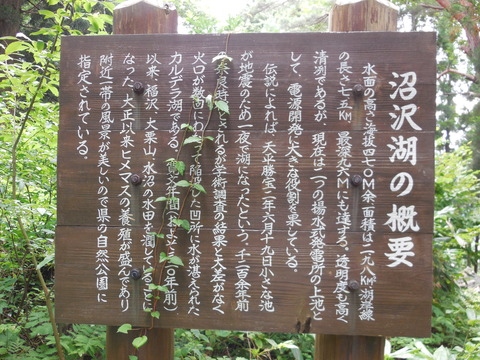 沼沢湖の概要
水面の高さ海抜四七〇M余、面積は一八KM²湖岸線
の長さ七・五KM 最深九六Mにも達する。透明度も高く
清冽であるが、現在は二つの揚水式発電所の上池と
して、電源開発に大きな役割を果している。
伝説によれば、天平勝宝二年六月十九日小さな池
が地震のため一夜で湖になったという。千二百余年前
火口が数回にわたって陥没した凹所に水が湛えられた
カルデラ湖である。
以来、福沢、大栗山、水沼の水田を潤していること
なった。大正以来ヒメマスの養殖が盛んであり
附近一帯の風景が美しいので県の自然公園に
指定されている。